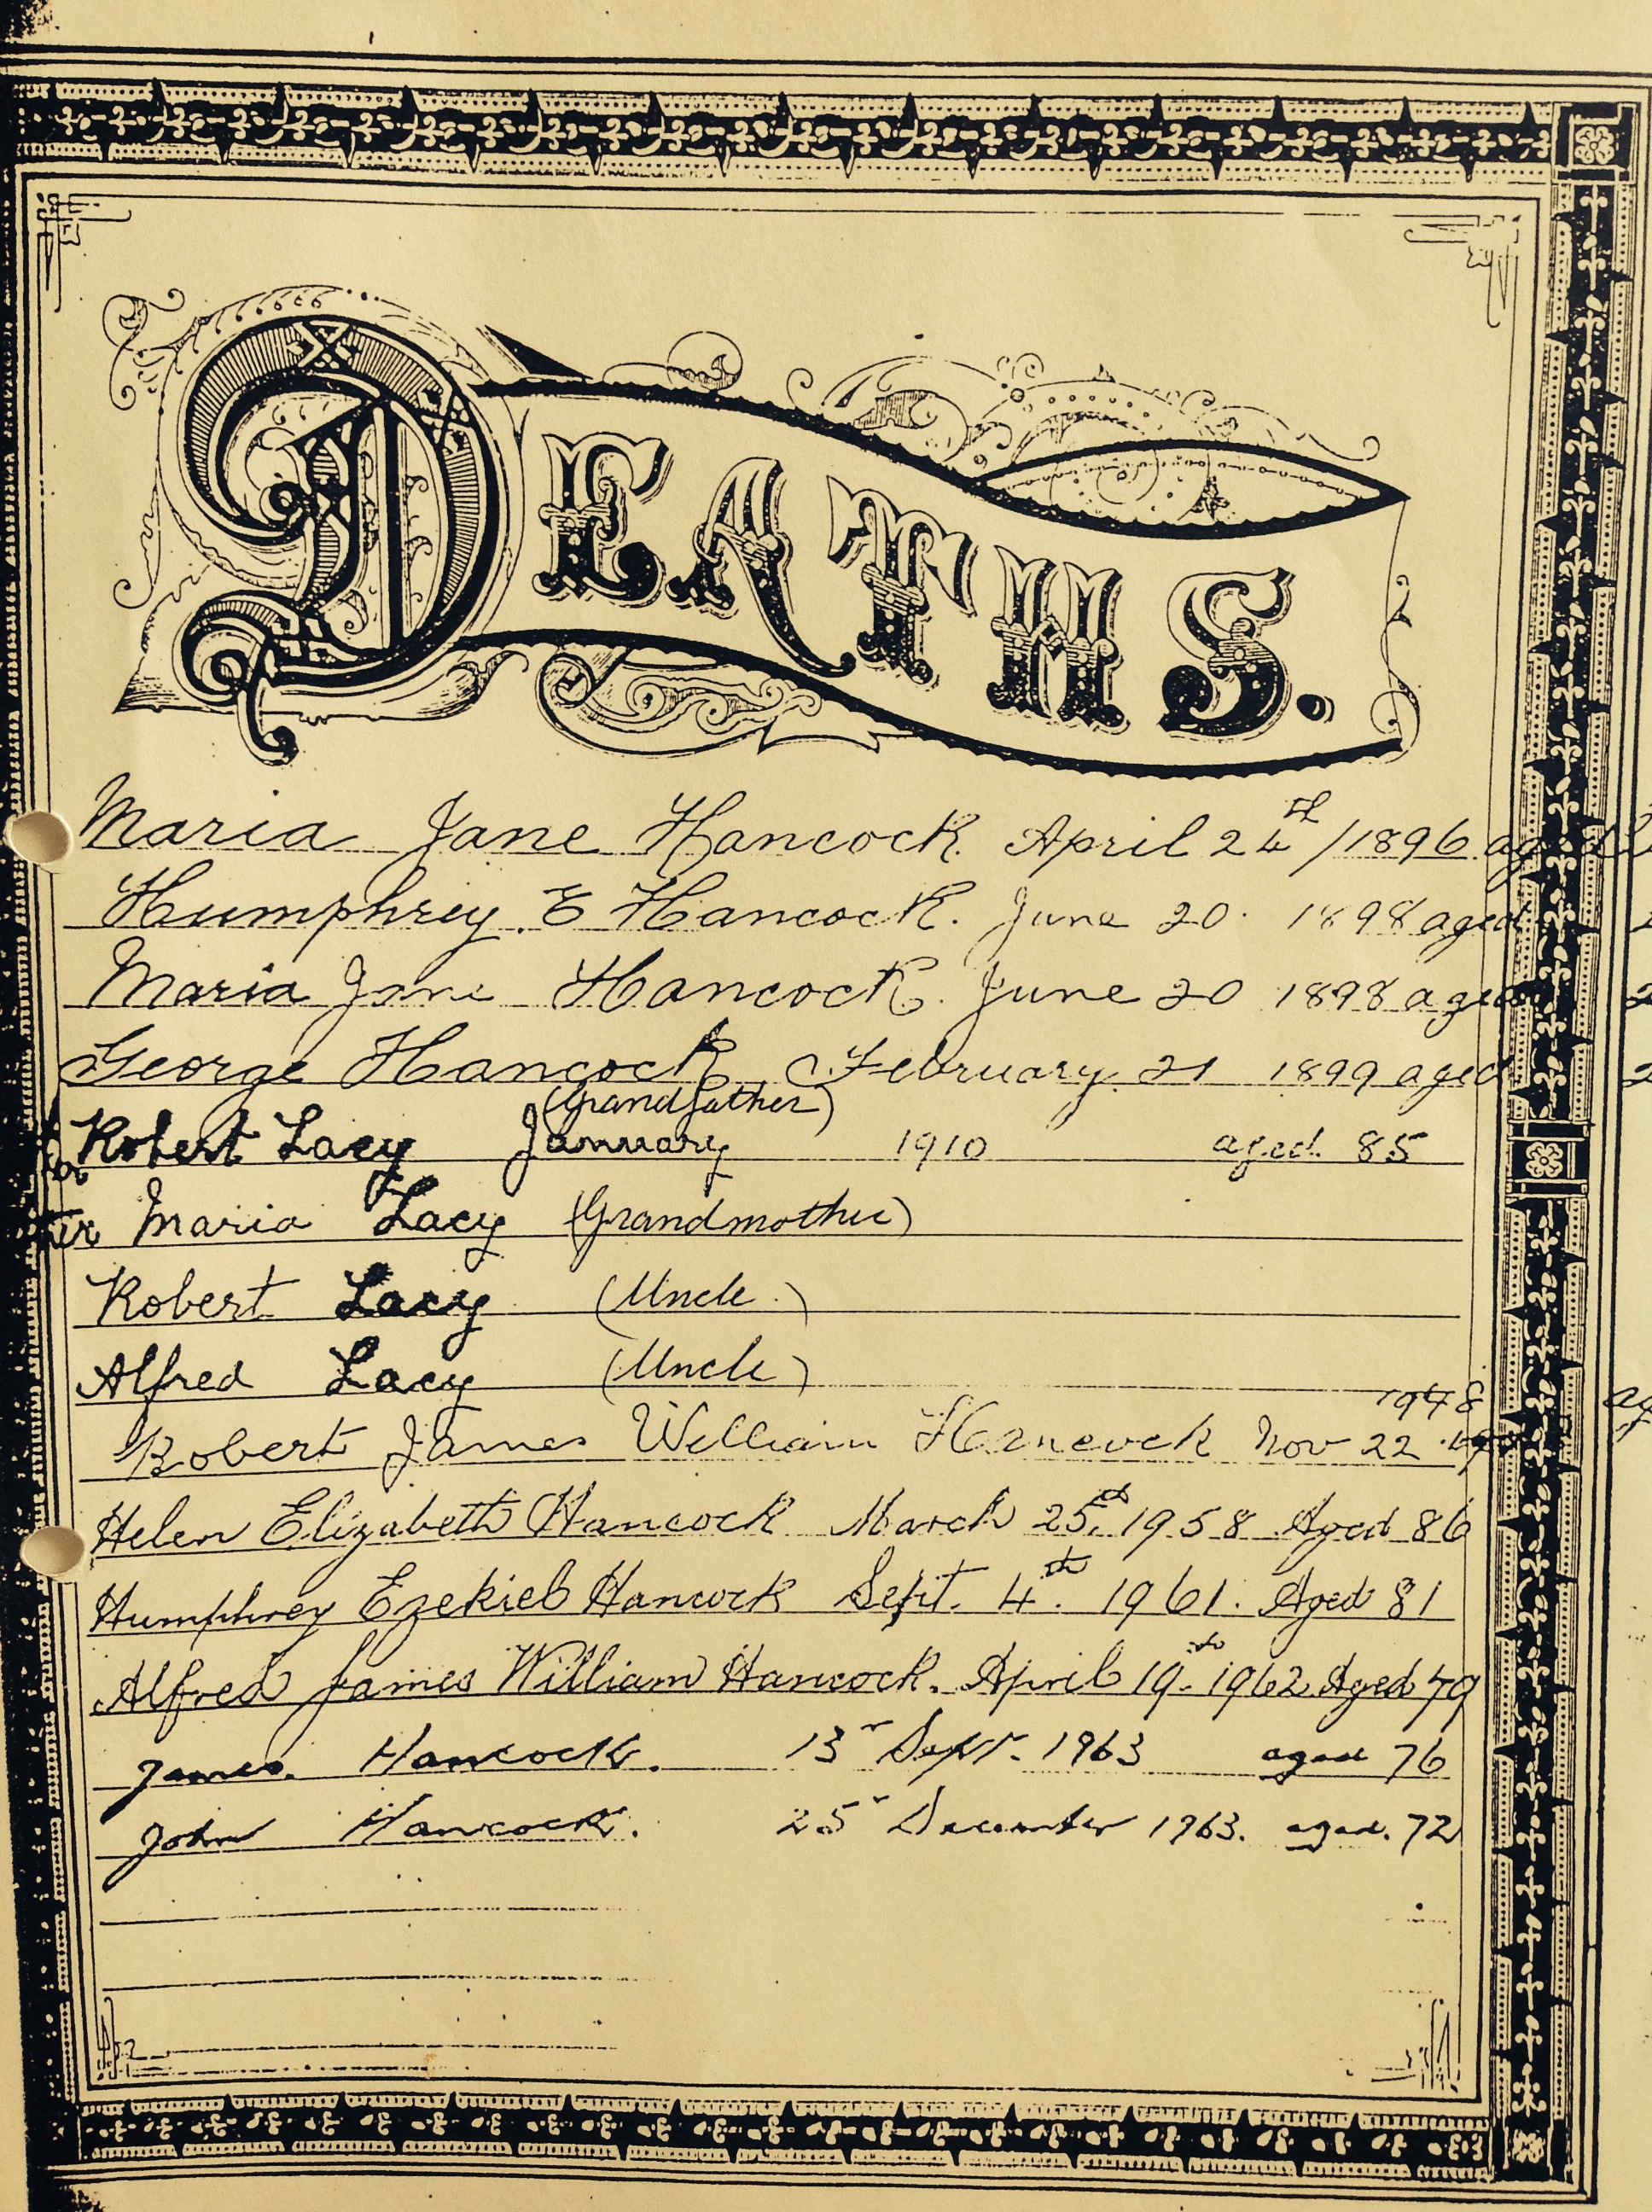 DEATHS.
Maria Jane Hancock April 24th/1896
Humphrey. E Hancock. June 20. 1898 aged
Maria Jane Hancock. June 20 1898 aged
George Hancock February 21 1899 aged
(Grandfather)
Robert Lacy January 1910 aged 85
Maria Lacy (Grandmother)
Robert Lacy (Uncle.)
Alfred Lacy (Uncle)
1948
Robert James William Hancock Nov 22
Helen Elizabeth Hancock March 25th 1958 Aged 86
Humphrey Ezekiel Hancock Sept. 4th. 1961. Aged 81
Alfred James William Hancock. April 19th 1962 Aged 79
James. Hancock. 13 Sept. 1963 aged 76
John Hancock. 25 December 1963. aged. 72